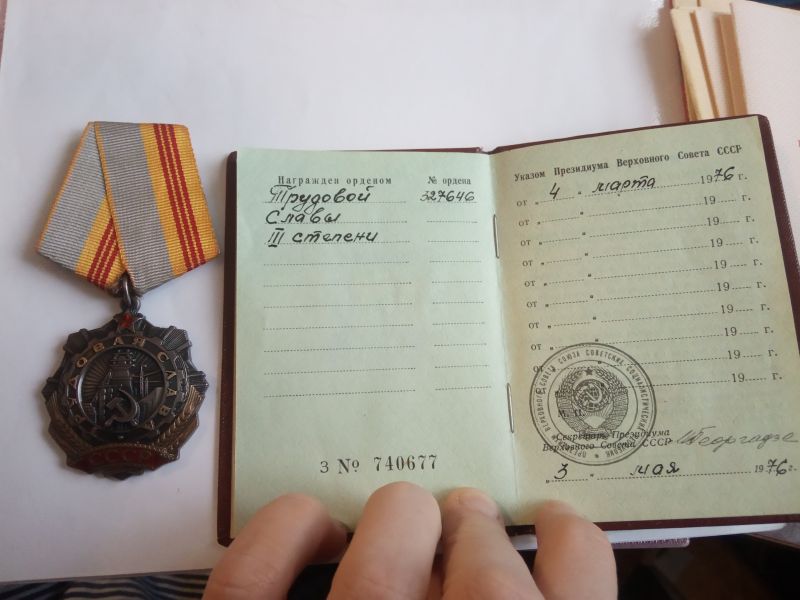 ТРУДОВАЯ СЛАВА
СССР
Награжден орденом № ордена
Трудовой 327646
Славы
III степени
З № 740677
Указом Президиума Верховного Совета СССР
от „ 4 “ марта 1976 г.
от „ “ 19 г.
от „ “ 19 г.
от „ “ 19 г.
от „ “ 19 г.
от „ “ 19 г.
от „ “ 19 г.
от „ “ 19 г.
от „ “ 19 г.
М. П.
Секретарь Президиума
Верховного Совета СССР МГеоргадзе
„ 3 “ мая 1976 г.
ВЕРХОВНОГО СОВЕТА СОЮЗА СОВЕТСКИХ СОЦИАЛИСТИЧЕСКИХ